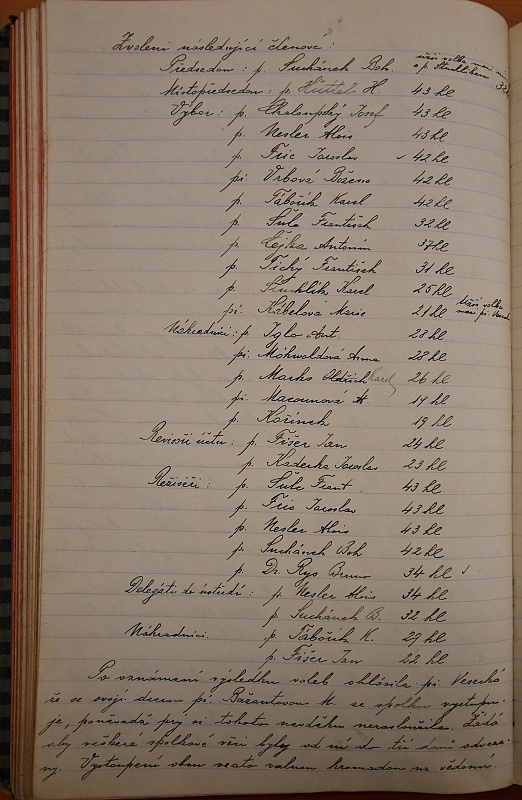 Zvoleni následující členové:
Předsedou: p. Suchánek Boh. užší volba mezi ním
a p. Stuchlíkem 32 hl
Místopředsedou: p. Hüttel H 43 hl
Výbor: p. Chaloupský Josef 43 hl
p. Nesler Alois 43 hl
p. Fric Jaroslav 42 hl
pí Vrbová Božena 42 hl
p. Tábořík Karel 42 hl
p. Šulc František 32 hl
p. Čejka Antonín 37 hl
p. Tichý František 31 hl
p. Stuchlík Karel 25 hl
pí. Kábelová Marie 21 hl užší volba
mezi pí.
Náhradníci: p. Iglo Ant. 28 hl
pí. Móhwaldová Anna 28 hl
p. Marks Oldřich Karel 26 hl
pí. Macounová A. 19 hl
p. Kořínek 19 hl
Revisoři účtu: p. Fišer Jan 24 hl
p. Kaderka Jaroslav 23 hl
Režiséři: p. Šulc Frant 43 hl
p. Fric Jaroslav 43 hl
p. Nesler Alois 43 hl
p. Suchánek Boh 42 hl
p. Dr. Rys Bruno 34 hl
Delegáti do ústředí: p. Nesler Alois 34 hl
p. Suchánek B. 32 hl
Náhradníci. p. Tábořík K. 29 hl
p. Fišer Jan 22 hl
Po oznámení výsledku voleb ohlásila pí. Veselá
že se svojí dcerou pí. Bažantovou M. se spolku vystupu-
je, poněvadž prý si tohoto nevděku nezasloužila. Žádá
aby veškeré spolkové věci byly od ní do tří dnů odveze-
ny. Vystoupení obou vzato valnou hromadou na vědomí.